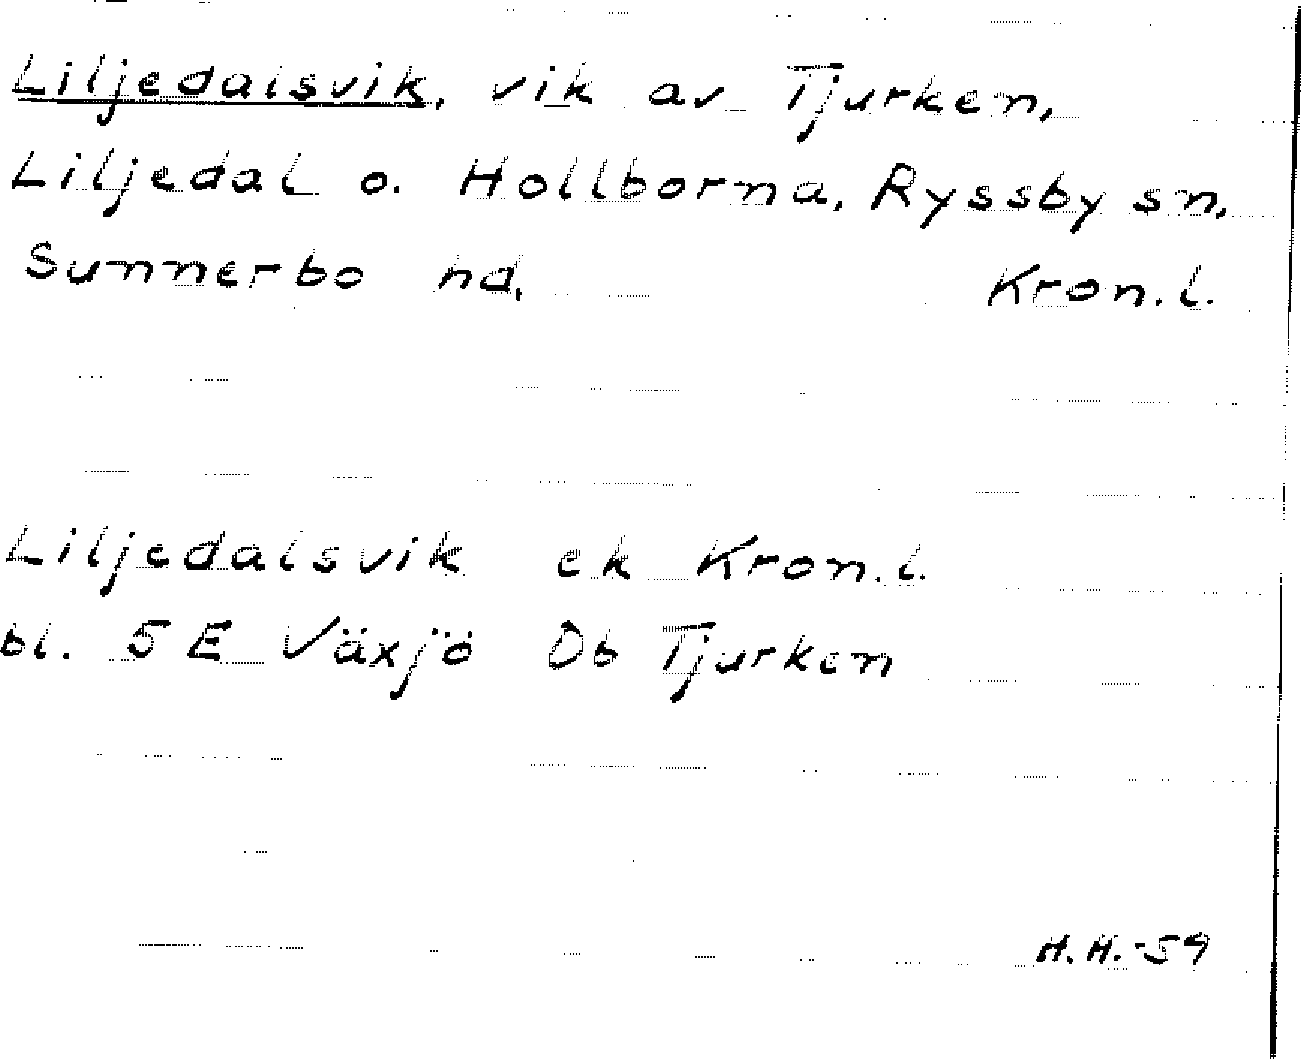 Liljedalsvik, vik av Tjurken,
Liljedal o. Hollborna, Ryssby sn,
Sunnerbo hd, Kron.l.
Liljedalsvik ek Kron.l.
bl. 5 E Växjö Ob Tjurken
H.H.-59